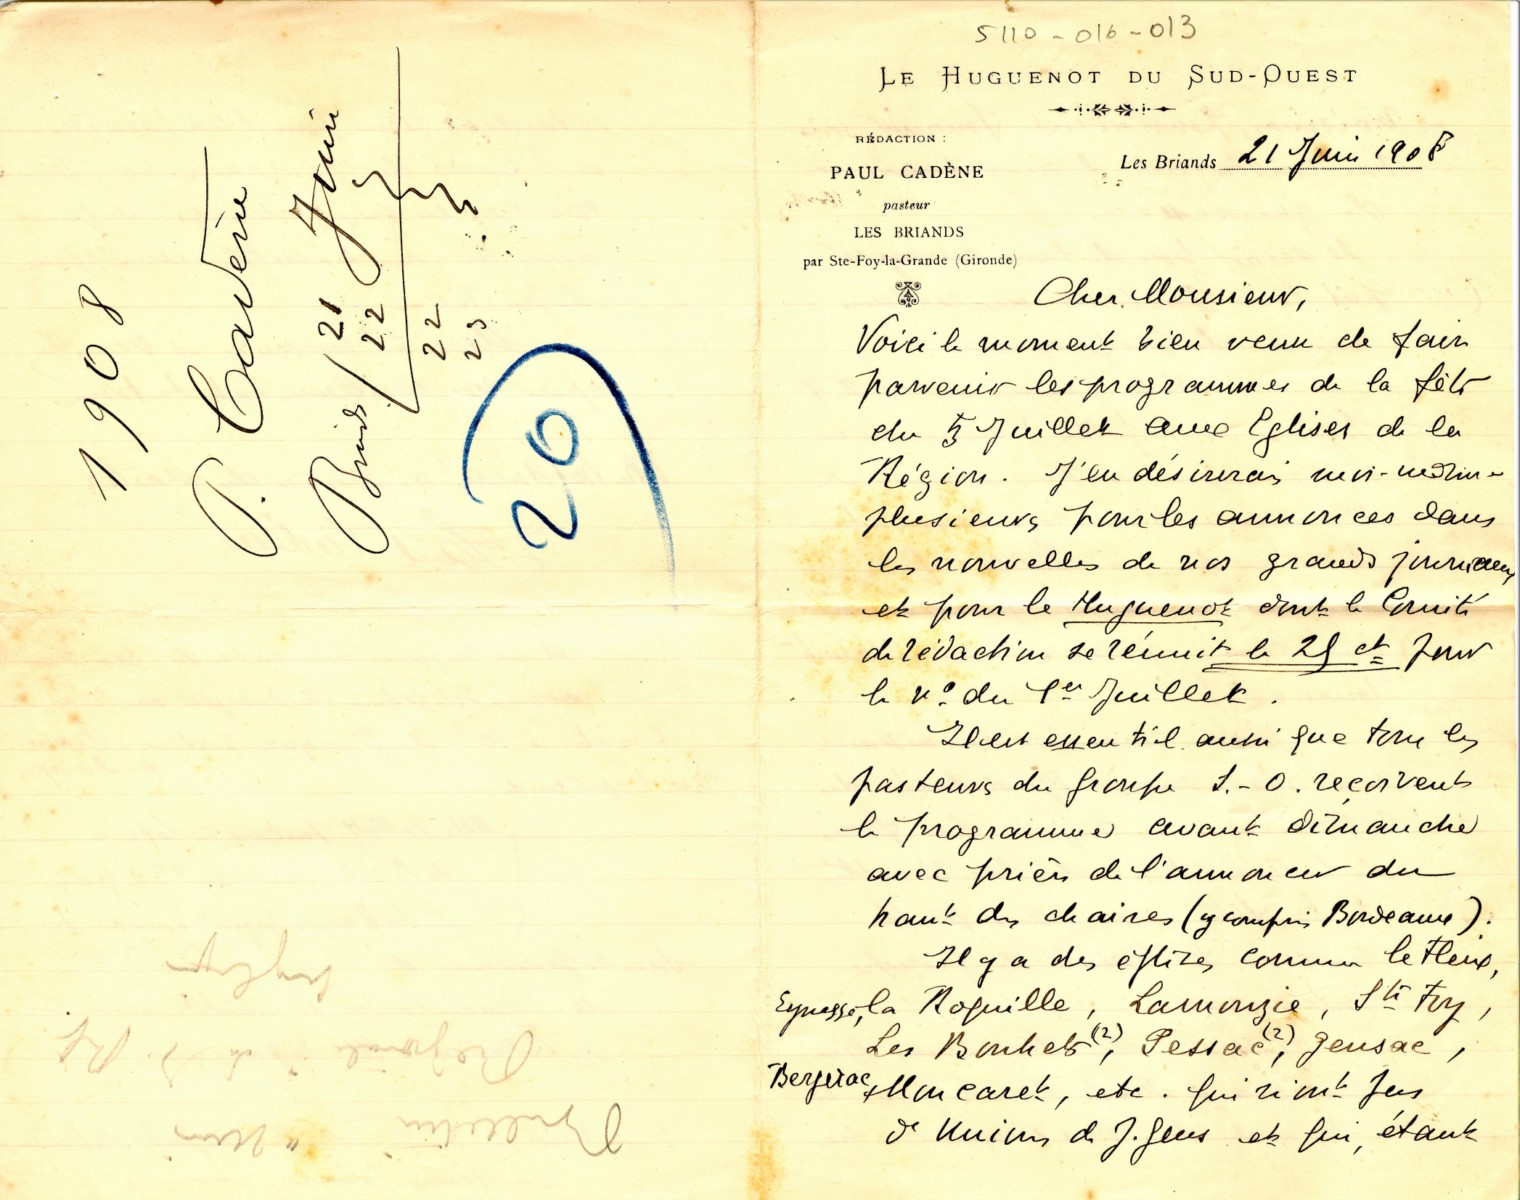 1908
P. Cadène
Briands
21 Juin
22
22
23
20
5110-016-013
LE HUGUENOT DU SUD-OUEST
RÉDACTION :
PAUL CADÈNE
pasteur
LES BRIANDS
par Ste-Foy-la-Grande (Gironde)
Les Briands 21 Juin 1908
Cher Monsieur,
Voici le moment bien venu de faire
parvenir les programmes de la fête
du 5 Juillet aux Eglises de la
Région. J'en désirerais moi-même
plusieurs pour les annonces dans
les nouvelles de nos grands journaux
et pour le Huguenot dont le Comité
de rédaction se réunit le 25 ct pour
le no. du 1er Juillet.
Il est essentiel aussi que tous les
pasteurs du groupe S.-O. reçoivent
le programme avant dimanche
avec prière de l'annoncer du
haut des chaires (y compris Bordeaux).
Il y a des églises comme le Fleix,
Eynesse, la Roquille, Lamonzie, Ste Foy,
Les Bonhets (2), Pessac (2), Gensac,
Bergerac, Moncaret, etc. qui n'ont pas
d'Unions de J. Gens et qui, étant